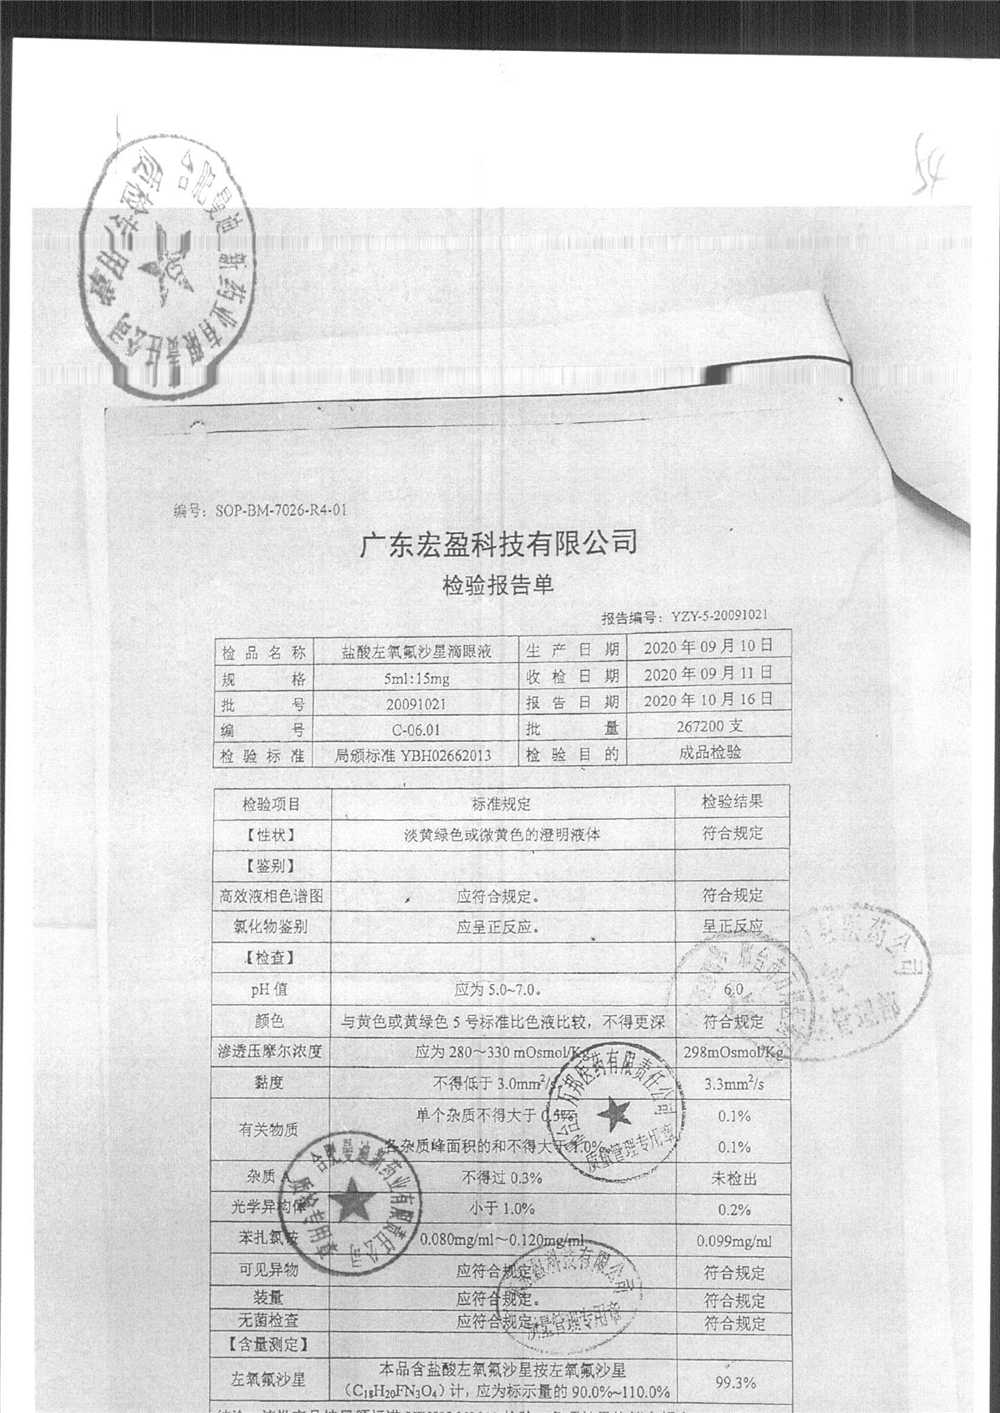 合肥曼迪新药业有限责任公司
质检专用章
54
编号：SOP-BM-7026-R4-01
广东宏盈科技有限公司
检验报告单
报告编号：YZY-5-20091021
检品名称 盐酸左氧氟沙星滴眼液 生产日期 2020年09月10日
规格 5ml:15mg 收检日期 2020年09月11日
批号 20091021 报告日期 2020年10月16日
编号 C-06.01 批量 267200支
检验标准 局颁标准YBH02662013 检验目的 成品检验
检验项目 标准规定 检验结果
【性状】 淡黄绿色或微黄色的澄明液体 符合规定
【鉴别】
高效液相色谱图 应符合规定。 符合规定
氯化物鉴别 应呈正反应。 呈正反应
【检查】
pH值 应为5.0~7.0。 6.0
颜色 与黄色或黄绿色5号标准比色液比较，不得更深 符合规定
渗透压摩尔浓度 应为280～330 mOsmol/Kg 298mOsmol/Kg
黏度 不得低于3.0mm²/s 3.3mm²/s
有关物质 单个杂质不得大于0.5% 0.1%
各杂质峰面积的和不得大于1.0% 0.1%
杂质A 不得过0.3% 未检出
光学异构体 小于1.0% 0.2%
苯扎氯铵 0.080mg/ml～0.120mg/ml 0.099mg/ml
可见异物 应符合规定 符合规定
装量 应符合规定。 符合规定
无菌检查 应符合规定 符合规定
【含量测定】
左氧氟沙星 本品含盐酸左氧氟沙星按左氧氟沙星 99.3%
（C₁₈H₂₀FN₃O₄）计，应为标示量的90.0%~110.0%
万邦医药有限责任公司
质量管理专用章
合肥曼迪新药业有限责任公司
质检专用章
科技有限公司
质量管理专用章